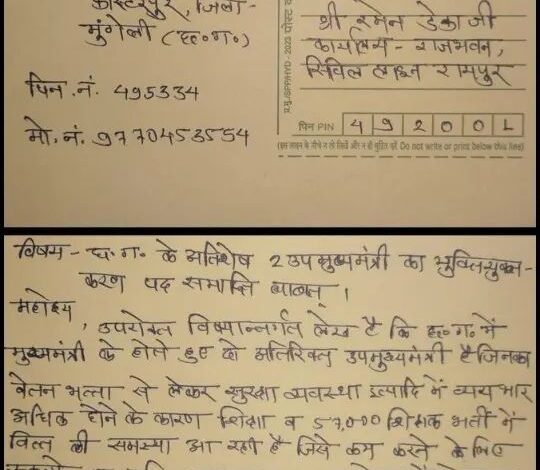 कोस्टरपुर, जिला-
मुंगेली (छ०ग०)
पिन. नं. 495334
मो. नं. 9770453554
श्री रमेन डेका जी
कार्यालय - राजभवन,
सिविल लाइन रायपुर
पिन PIN 4 9 2 0 0 1
(इस लाइन के नीचे न तो लिखें और न ही मुद्रित करें Do not write or print below this line)
विषय - छ. ग. के अतिशेष 2 उपमुख्यमंत्री का युक्तियुक्त-
करण पद समाप्ति बाबत् ।
महोदय,
उपरोक्त विषयान्तर्गत लेख है कि छ०ग० में
मुख्यमंत्री के होते हुए दो अतिरिक्त उपमुख्यमंत्री है जिनका
वेतन भत्ता से लेकर सुरक्षा व्यवस्था इत्यादि में व्यय भार
अधिक होने के कारण शिक्षा व 57,000 शिक्षक भर्ती में
वित्त की समस्या आ रही है जिसे कम करने के लिए